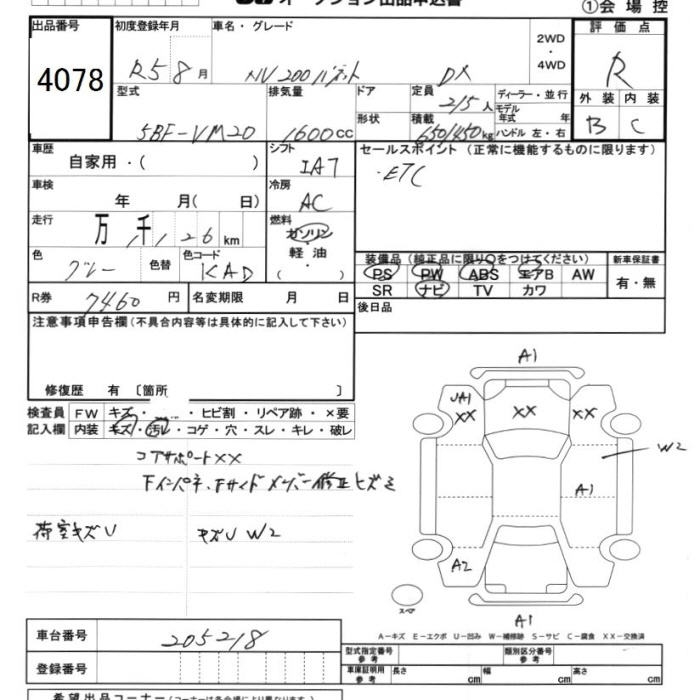 オークション出品申込書 ①会場控
出品番号 初度登録年月 車名・グレード 2WD・4WD 評価点
4078 R5 8月 NV200バネット DX R
型式 排気量 ドア 定員 ディーラー・並行 外装 内装
5BF-VM20 1600cc 2/5人 モデル年式 年 B C
形状 積載 650/450kg ハンドル 左・右
車歴 シフト セールスポイント (正常に機能するものに限ります)
自家用・( ) IA7 ・ETC
車検 冷房
年 月( 日) AC
走行 燃料
万 千 1,126km ガソリン
軽油
・( )
色 色替 色コード 装備品 (純正品に限り○をつけてください) 新車保証書
グレー KAD PS PW ABS エアB AW 有・無
SR ナビ TV カワ
R券 7460円 名変期限 月 日 後日品
注意事項申告欄 (不具合内容等は具体的に記入して下さい)
修復歴 有 〔箇所 〕
検査員 FW キズ・ ・ヒビ割・リペア跡・×要
記入欄 内装 キズ・汚レ・コゲ・穴・スレ・キレ・破レ
コアサポートXX
Fインパネ、Fサイドメンバー修正ヒズミ
荷室キズU キズU W2
A1
UA1
XX XX XX
W2
A1
A2
スペア
A1
A-キズ E-エクボ U-凹み W-補修跡 S-サビ C-腐食 XX-交換済
車台番号 205218
登録番号
型式指定番号 参考 類別区分番号 参考
車庫証明用 参考 長さ cm 幅 cm 高さ cm
希望出品コーナー (コーナーは各会場により異なります)